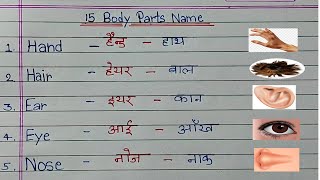 15 Body Parts Name
1. Hand - हैन्ड - हाथ
2. Hair - हेयर - बाल
3. Ear - इयर - कान
4. Eye - आई - आँख
5. Nose - नोज - नाक